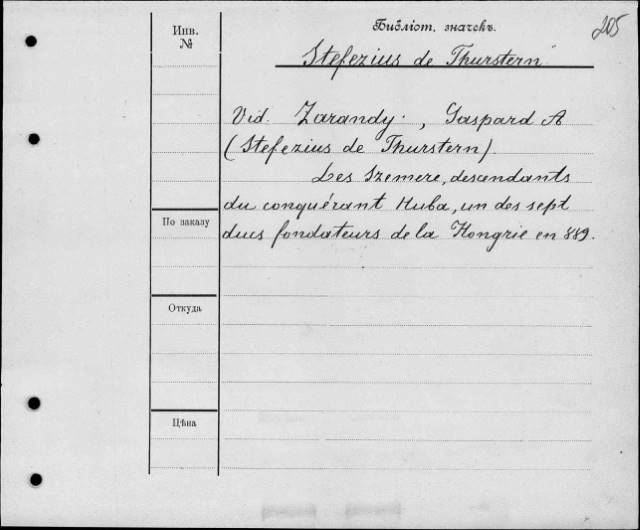 Инв.
№
Библіот. значекъ.
205
Stefezius de Thurstern
Vid. Zarandy, Gaspard A
(Stefezius de Thurstern).
Les Szemere, descendants
du conquérant Huba, un des sept
По заказу
ducs fondateurs de la Hongrie en 889.
Откуда
Цѣна